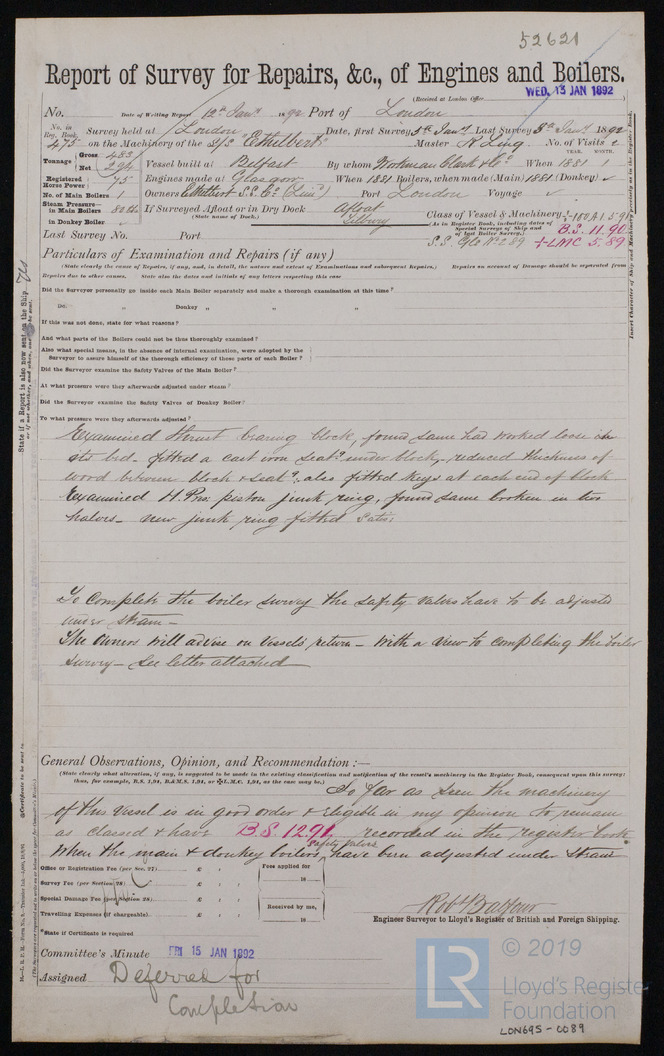 52621
Report of Survey for Repairs, &c., of Engines and Boilers.
(Received at London Office WED. 13 JAN 1892)
No. Date of Writing Report 12th Jany 1892 Port of London
No. in Reg. Book. 475 Survey held at London Date, first Survey 5th Jany Last Survey 8th Jany 1892
on the Machinery of the S/S "Ethelbert" Master R Ling No. of Visits 2
Tonnage Gross 483 Net 294 Vessel built at Belfast By whom Workman Clark & Co. When YEAR. 1881 MONTH. 1
Registered Horse Power 75 Engines made at Glasgow When 1881 Boilers, when made (Main) 1881 (Donkey) ✓
No. of Main Boilers 1 Owners Ethelbert S.S. Co. (Lim'd) Port London Voyage ✓
Steam Pressure in Main Boilers 80 lbs If Surveyed Afloat or in Dry Dock Afloat
(State name of Dock.) Tilbury
in Donkey Boiler ✓
Class of Vessel & Machinery 100A1 5,91
(As in Register Book, including dates of Special Surveys of Ship and of last Boiler Survey.) B.S. 11.90
S.S. No 2 89 +LMC 5.89
Last Survey No. Port
Particulars of Examination and Repairs (if any)
(State clearly the cause of Repairs, if any, and, in detail, the nature and extent of Examinations and subsequent Repairs.) Repairs on account of Damage should be separated from
Repairs due to other causes. State also the dates and initials of any letters respecting this case
Did the Surveyor personally go inside each Main Boiler separately and make a thorough examination at this time?
Do. " Donkey " " "
If this was not done, state for what reasons?
And what parts of the Boilers could not be thus thoroughly examined?
Also what special means, in the absence of internal examination, were adopted by the
Surveyor to assure himself of the thorough efficiency of those parts of each Boiler?
Did the Surveyor examine the Safety Valves of the Main Boiler?
At what pressure were they afterwards adjusted under steam?
Did the Surveyor examine the Safety Valves of Donkey Boiler?
To what pressure were they afterwards adjusted?
Examined thrust bearing block, found same had worked loose in
its bed. fitted a cast iron seat under block, reduced thickness of
wood between block & seat, also fitted keys at each end of block
Examined H. Prs. piston junk ring, found same broken in two
halves – new junk ring fitted
To complete the boiler survey the safety valves have to be adjusted
under steam –
The owners will advise on vessels return – with a view to completing the boiler
survey – see letter attached
General Observations, Opinion, and Recommendation :—
(State clearly what alteration, if any, is suggested to be made in the existing classification and notification of the vessel's machinery in the Register Book, consequent upon this survey;
thus, for example, B.S. 1,91, B.&M.S. 1,91, or ✠L.M.C. 1,91, as the case may be.)
So far as seen the machinery
of this vessel is in good order & eligible in my opinion to remain
as classed & have B.S. 12.91 recorded in the register book
when the main & donkey boilers safety valves have been adjusted under steam
Office or Registration Fee (per Sec. 27) £ : : Fees applied for
Survey Fee (per Section 28) £ : : 18
Special Damage Fee (per Section 28) £ : : Received by me,
Travelling Expenses (if chargeable) £ : : 18
Robt Balfour
Engineer Surveyor to Lloyd's Register of British and Foreign Shipping.
*State if Certificate is required
Committee's Minute FRI 15 JAN 1892
Assigned Deferred for
Completion
State if a Report is also now sent on the Ship. Yes
or if not whether, and when, one will be sent.
Insert Character of Ship and Machinery precisely as in the Register Book.
LR
© 2019
Lloyd's Register
Foundation
LON695-0089